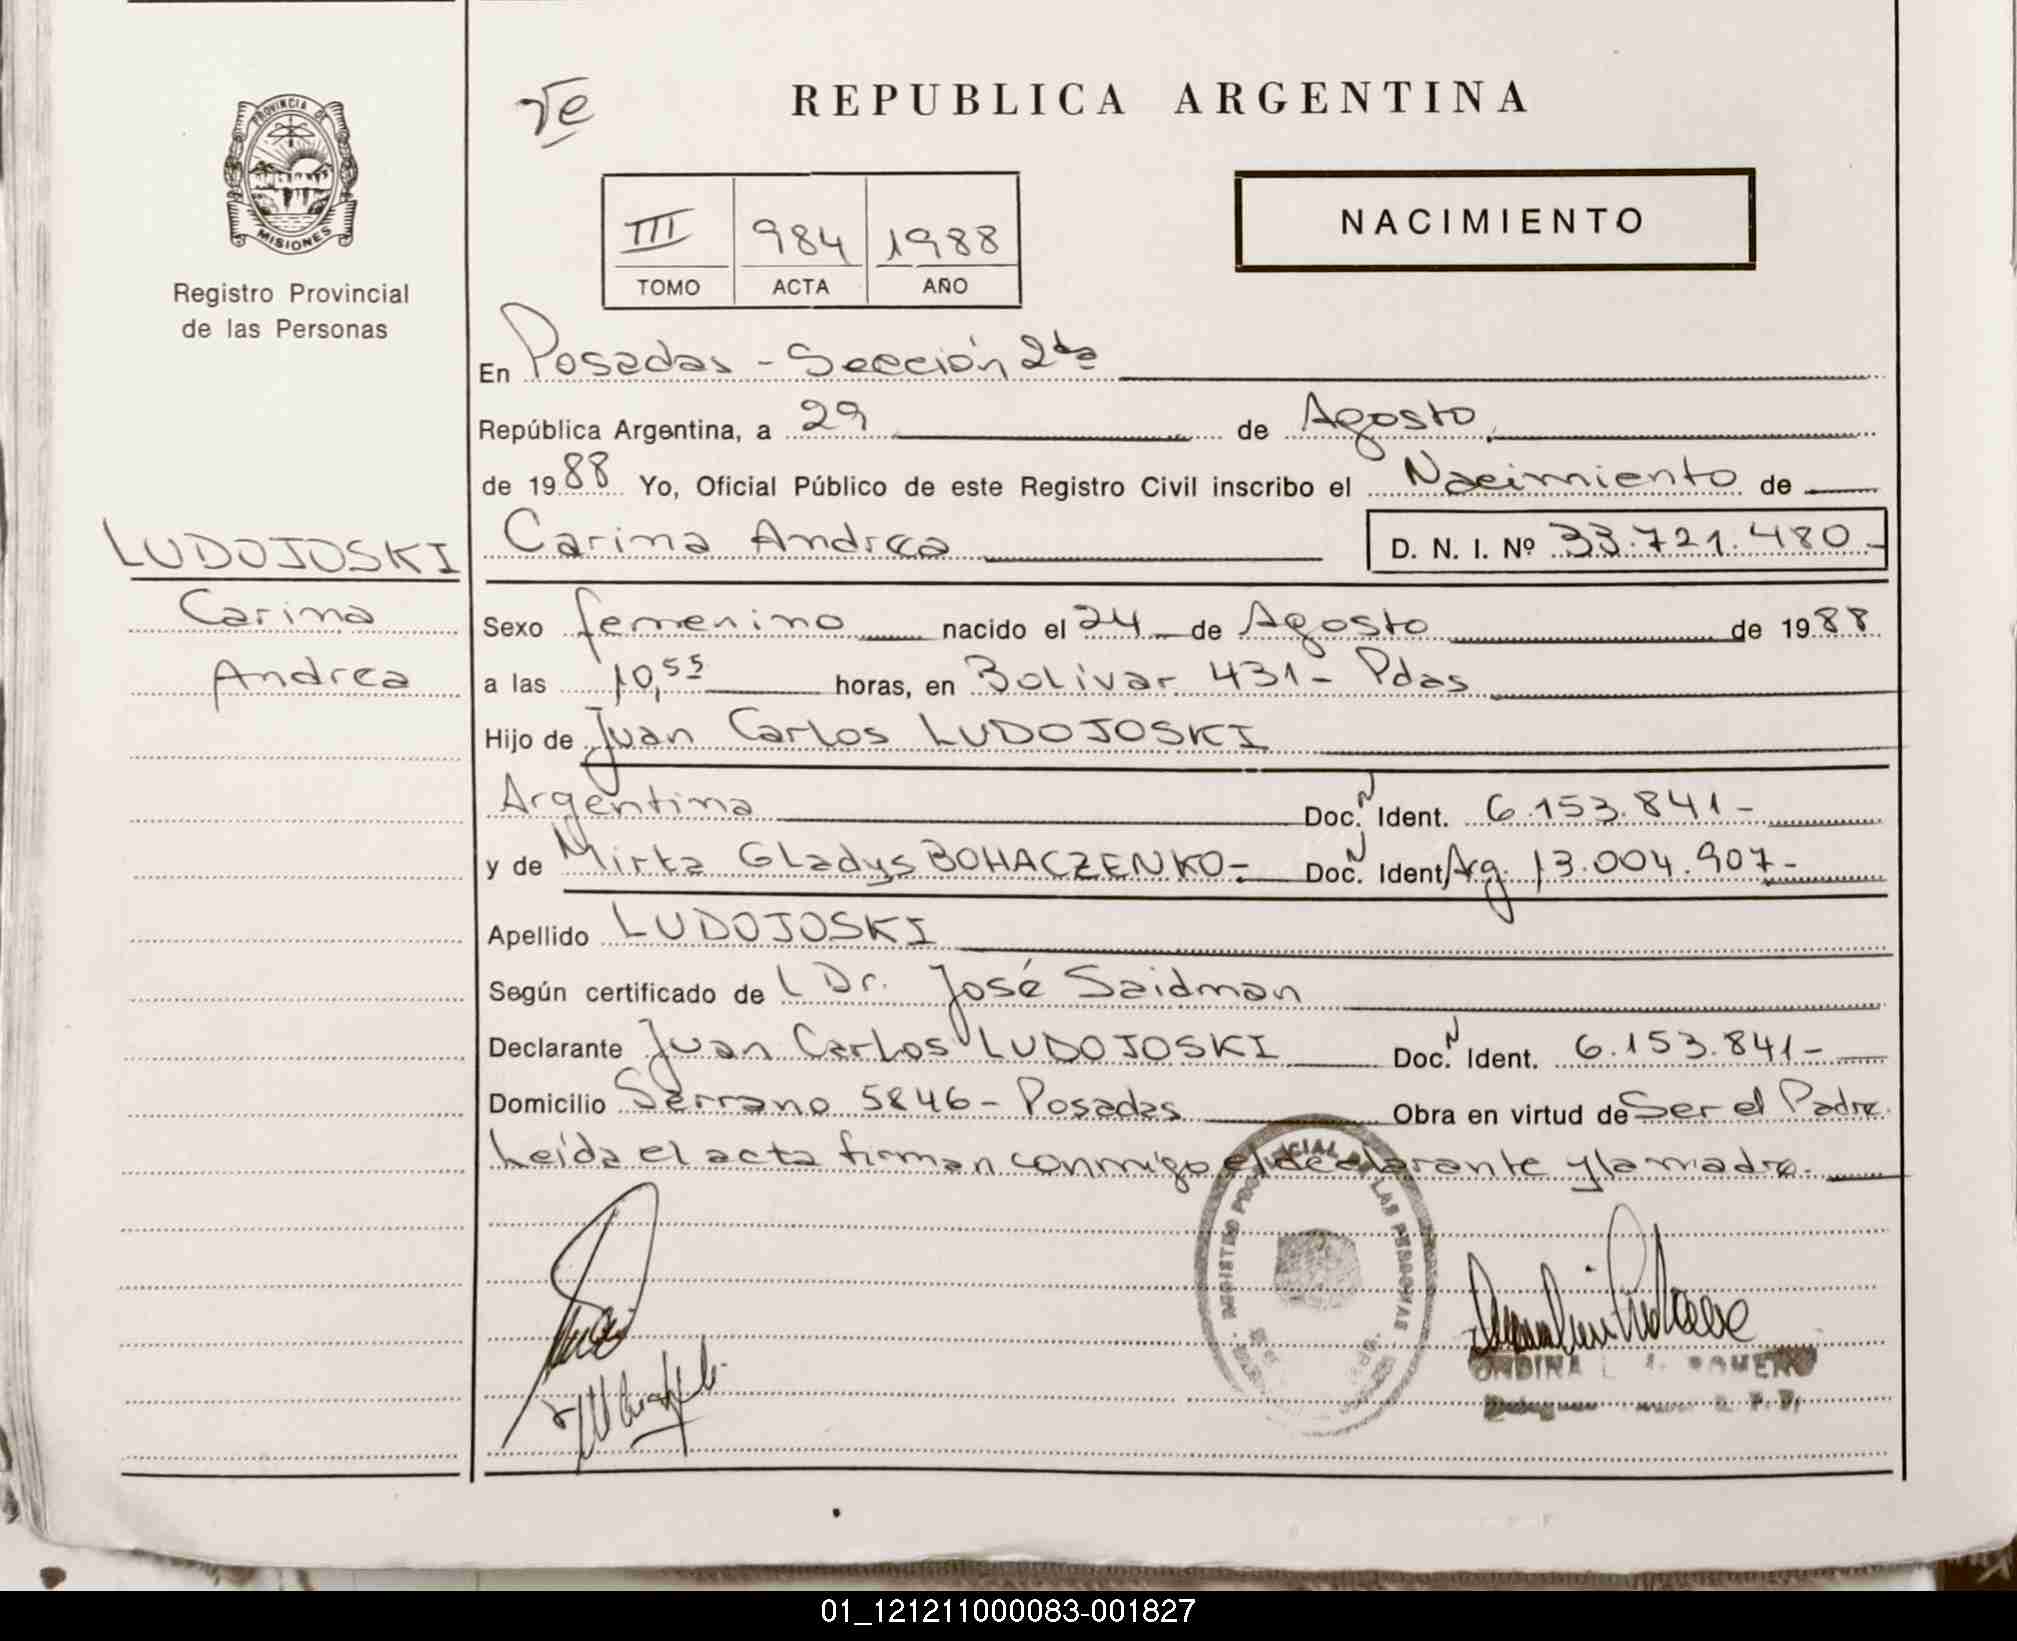 PROVINCIA DE
MISIONES
Registro Provincial
de las Personas
LUDOJOSKI
Carina
Andrea
REPUBLICA ARGENTINA
III 984 1988
TOMO ACTA AÑO
NACIMIENTO
En Posadas - Sección 2da
República Argentina, a 29 de Agosto
de 1988 Yo, Oficial Público de este Registro Civil inscribo el Nacimiento de
Carina Andrea D. N. I. Nº 33.721.480.-
Sexo femenino nacido el 24 de Agosto de 1988
a las 10,55 horas, en Bolivar 431 - Pdas
Hijo de Juan Carlos LUDOJOSKI
Argentina Doc. N Ident. 6.153.841-
y de Mirta Gladys BOHACZENKO- Doc. N Ident Arg. 13.004.907-
Apellido LUDOJOSKI
Según certificado de l Dr. José Saidman
Declarante Juan Carlos LUDOJOSKI Doc. N Ident. 6.153.841-
Domicilio Serrano 5846 - Posadas Obra en virtud de Ser el Padre.
Leída el acta firman conmigo el declarante y la madre.
LAS PERSONAS
ONDINA
01_121211000083-001827